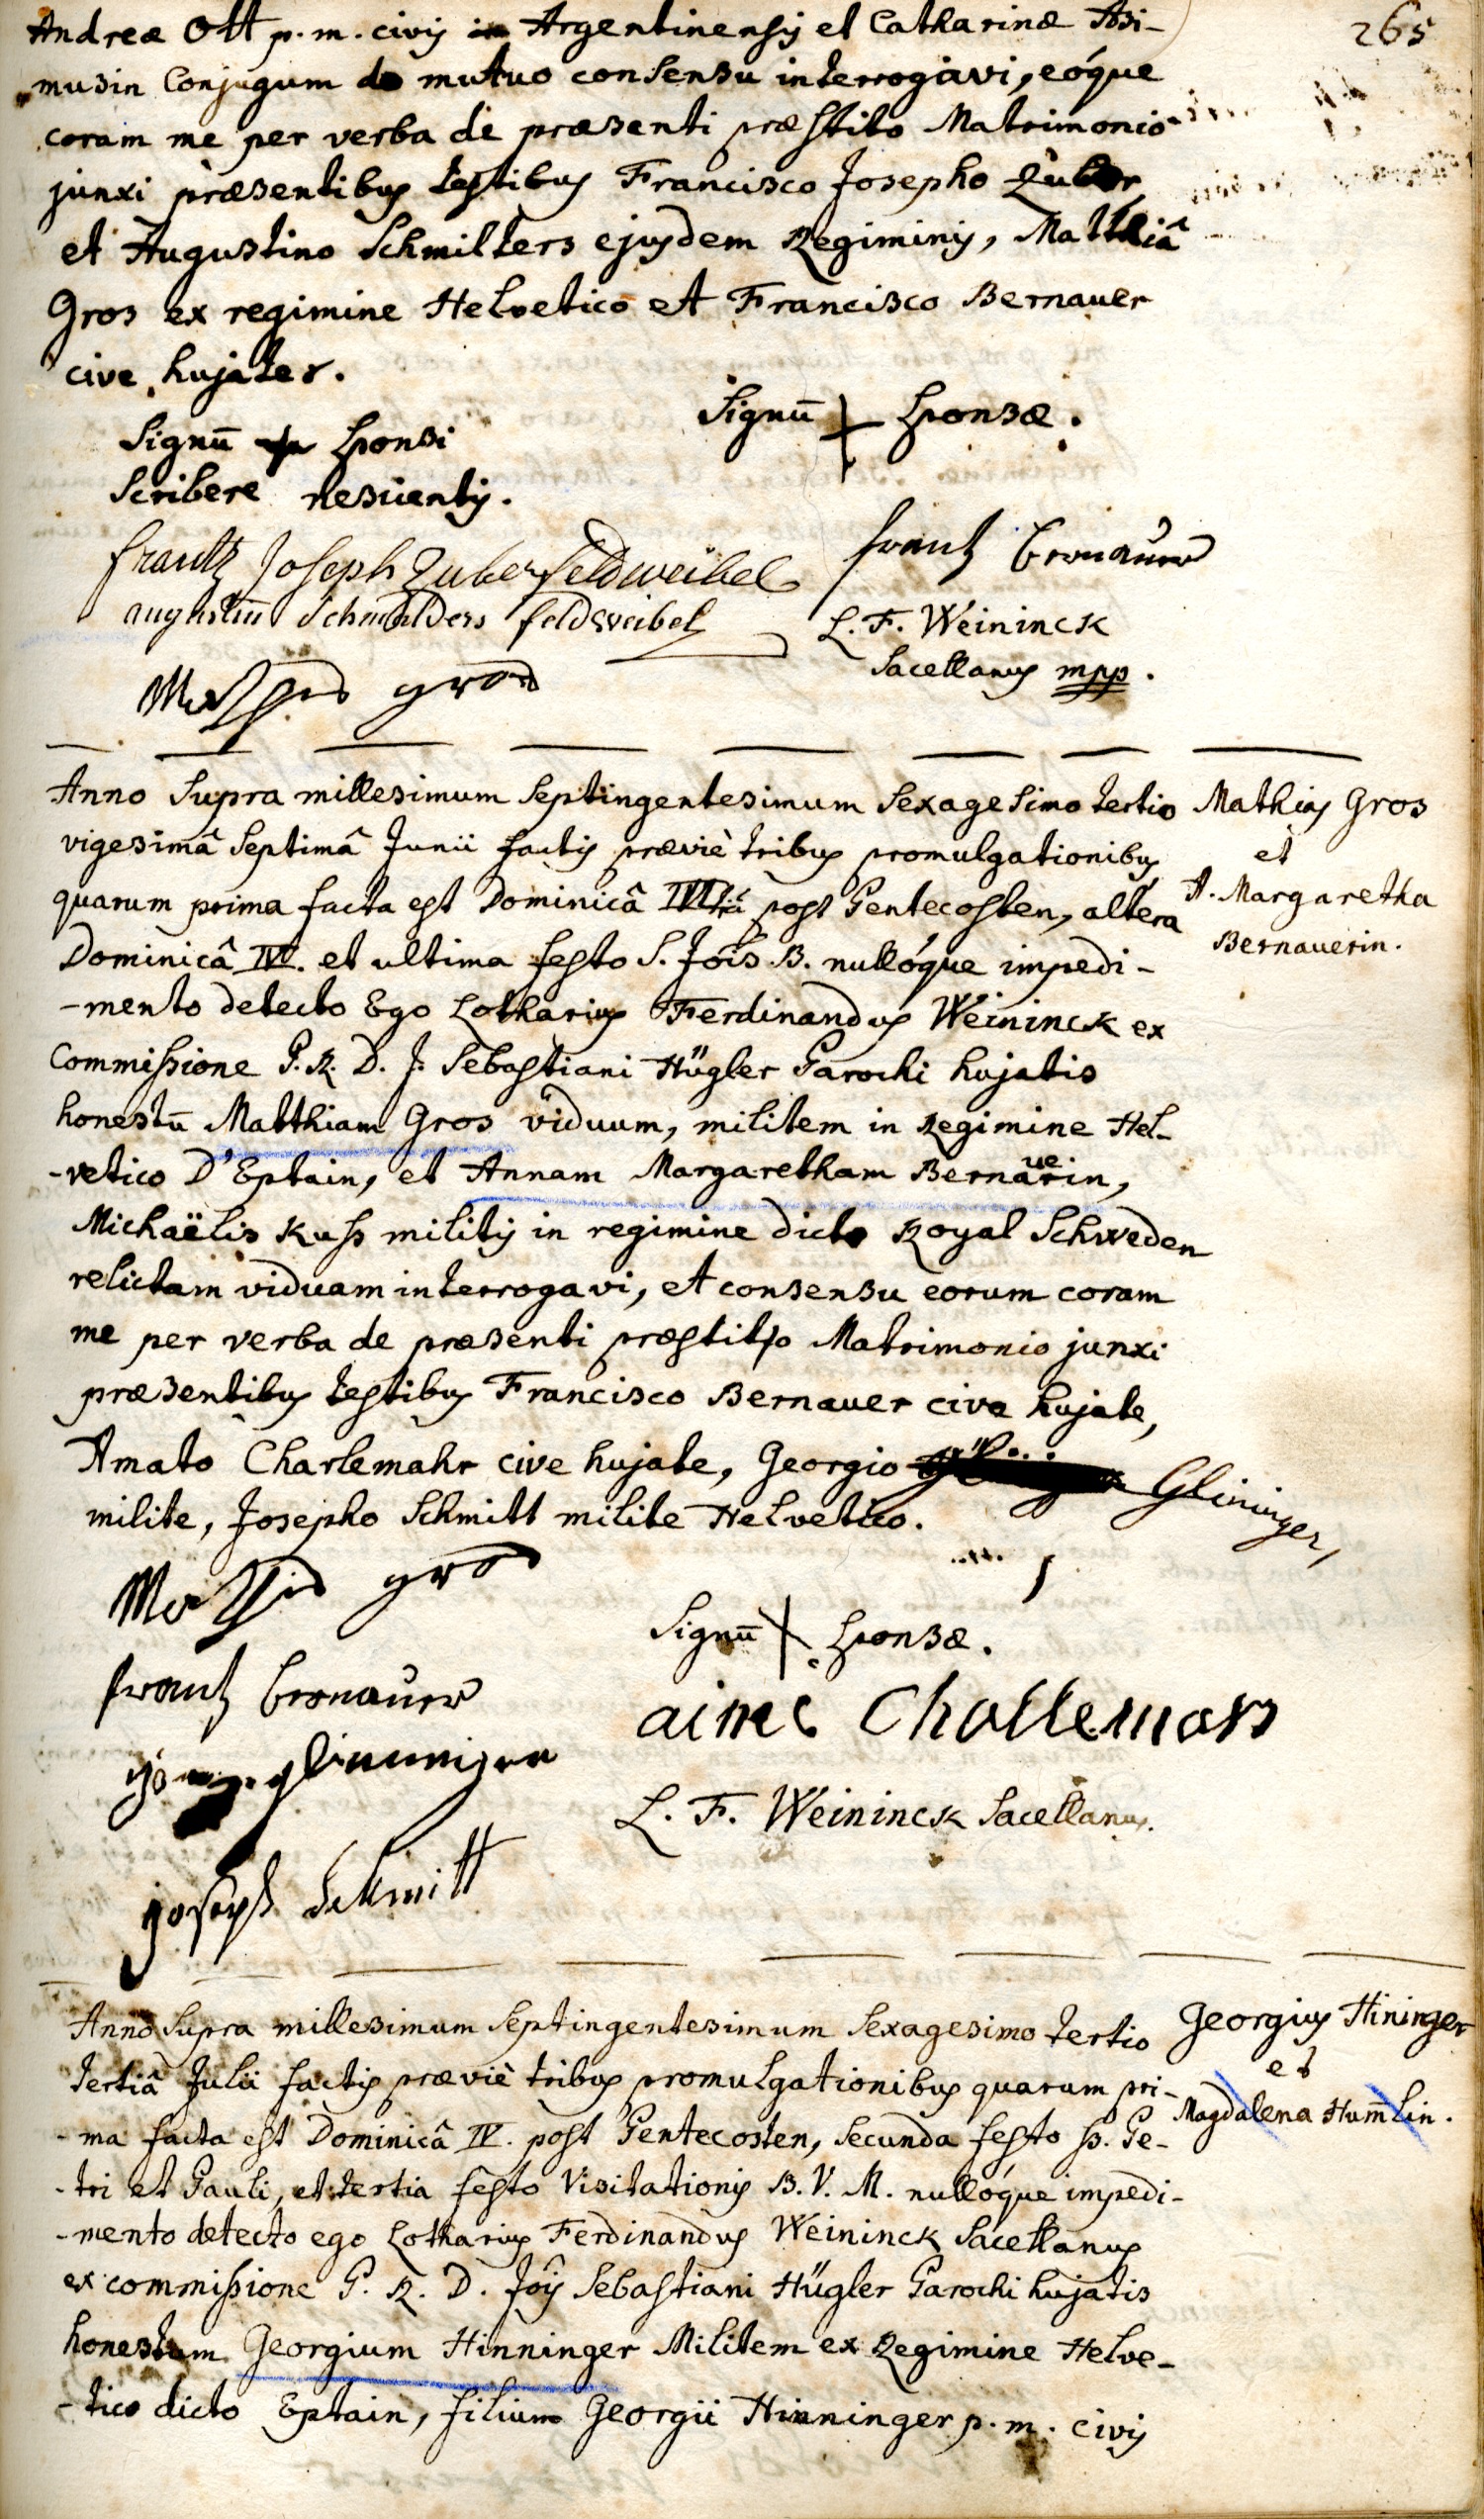 265
Andreæ Ott p. m. civis Argentinensis et Catharinæ
musin Conjugum de mutuo consensu interrogavi, eóque
coram me per verba de præsenti præstito Matrimonio
junxi præsentibus testibus Francisco Josepho Zuber
et Augustino Schmilters ejusdem Regiminis, Matthiâ
Gros ex regimine Helvetico et Francisco Bernauer
cive hujater.
Signū + Sponsi
Scribere nescientis.
Signū + Sponsæ.
frantz Joseph Zuber feldweibel
augustin Schmilders feldweibel
frantz bernauer
L. F. Weininck
Sacellanus mpp.
Mathis gros
Anno Supra millesimum Septingentesimum Sexagesimo tertio
vigesimâ Septimâ Junii factis præviè tribus promulgationibus,
quarum prima facta est Dominicâ post Pentecosten, altera
Dominicâ IV. et ultima festo S. Jois B. nullóque impedi-
-mento detecto Ego Lotharius Ferdinandus Weininck ex
Commissione P. R. D. J. Sebastiani Hügler Parochi hujatis
honestū Matthiam Gros viduum, militem in Regimine Hel-
-vetico D'Eptain, et Annam Margaretham Bernauerin,
Michaëlis Kuss militis in regimine dicto Royal Schweden
relictam viduam interrogavi, et consensu eorum coram
me per verba de præsenti præstito Matrimonio junxi
præsentibus testibus Francisco Bernauer cive hujate,
Amato Charlemahr cive hujate, Georgio Glininger,
milite, Josepho Schmitt milite Helvetico.
Mathias Gros
et
A. Margaretha
Bernauerin.
Mathis gros
Signū + Sponsæ.
frantz bernauer
L. F. Weininck Sacellanus.
joseph Schmitt
Anno Supra millesimum Septingentesimum Sexagesimo tertio
tertiâ Julii factis præviè tribus promulgationibus quarum pri-
-ma facta est Dominicâ IV. post Pentecosten, Secunda festo ss. Pe-
-tri et Pauli, et tertia festo Visitationis B. V. M. nullóque impedi-
-mento detecto ego Lotharius Ferdinandus Weininck Sacellanus
ex commissione P. R. D. Jois Sebastiani Hügler Parochi hujatis
honestum Georgium Hinninger Militem ex Regimine Helve-
-tico dicto Eptain, filium Georgii Hinninger p. m. civis
Georgius Hininger
et
Magdalena Hum̄lin.